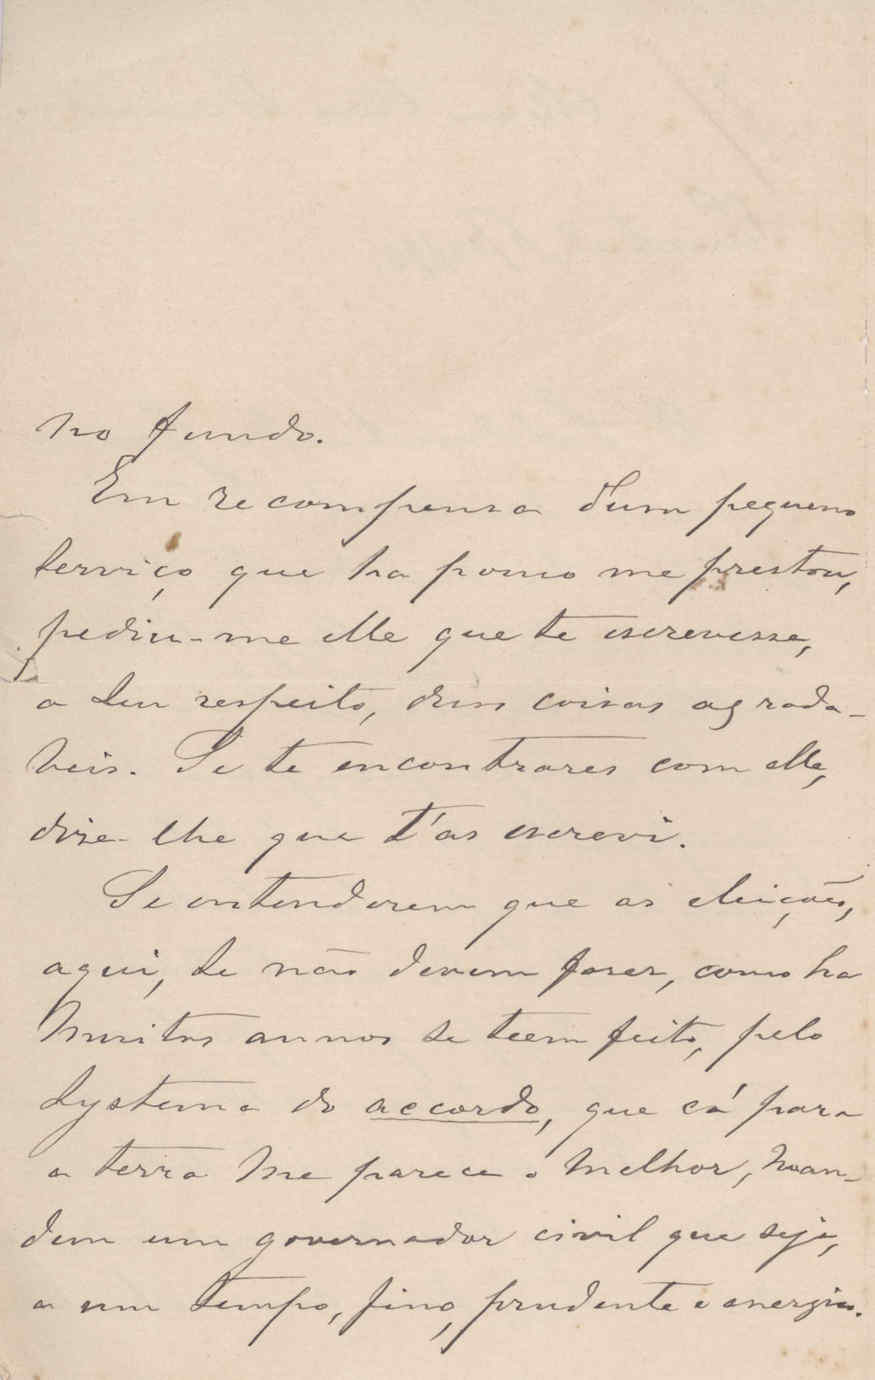 no fundo.
Em recompensa d'um pequeno
serviço que ha pouco me prestou,
pediu-me elle que te escrevesse,
a seu respeito, duas coisas agrada-
veis. Se te encontrares com elle,
dize-lhe que t'as escrevi.
Se entenderem que as eleições,
aqui, se não devem fazer, como ha
muitos annos se teem feito, pelo
systema do accordo, que cá para
a terra me parece o melhor, man-
dem um governador civil que seja,
a um tempo, fino, prudente e energico.